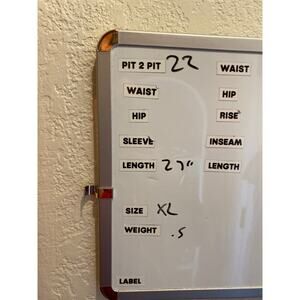 PIT 2 PIT 22 WAIST
WAIST HIP
HIP RISE
SLEEVE INSEAM
LENGTH 27" LENGTH
SIZE XL
WEIGHT .5
LABEL